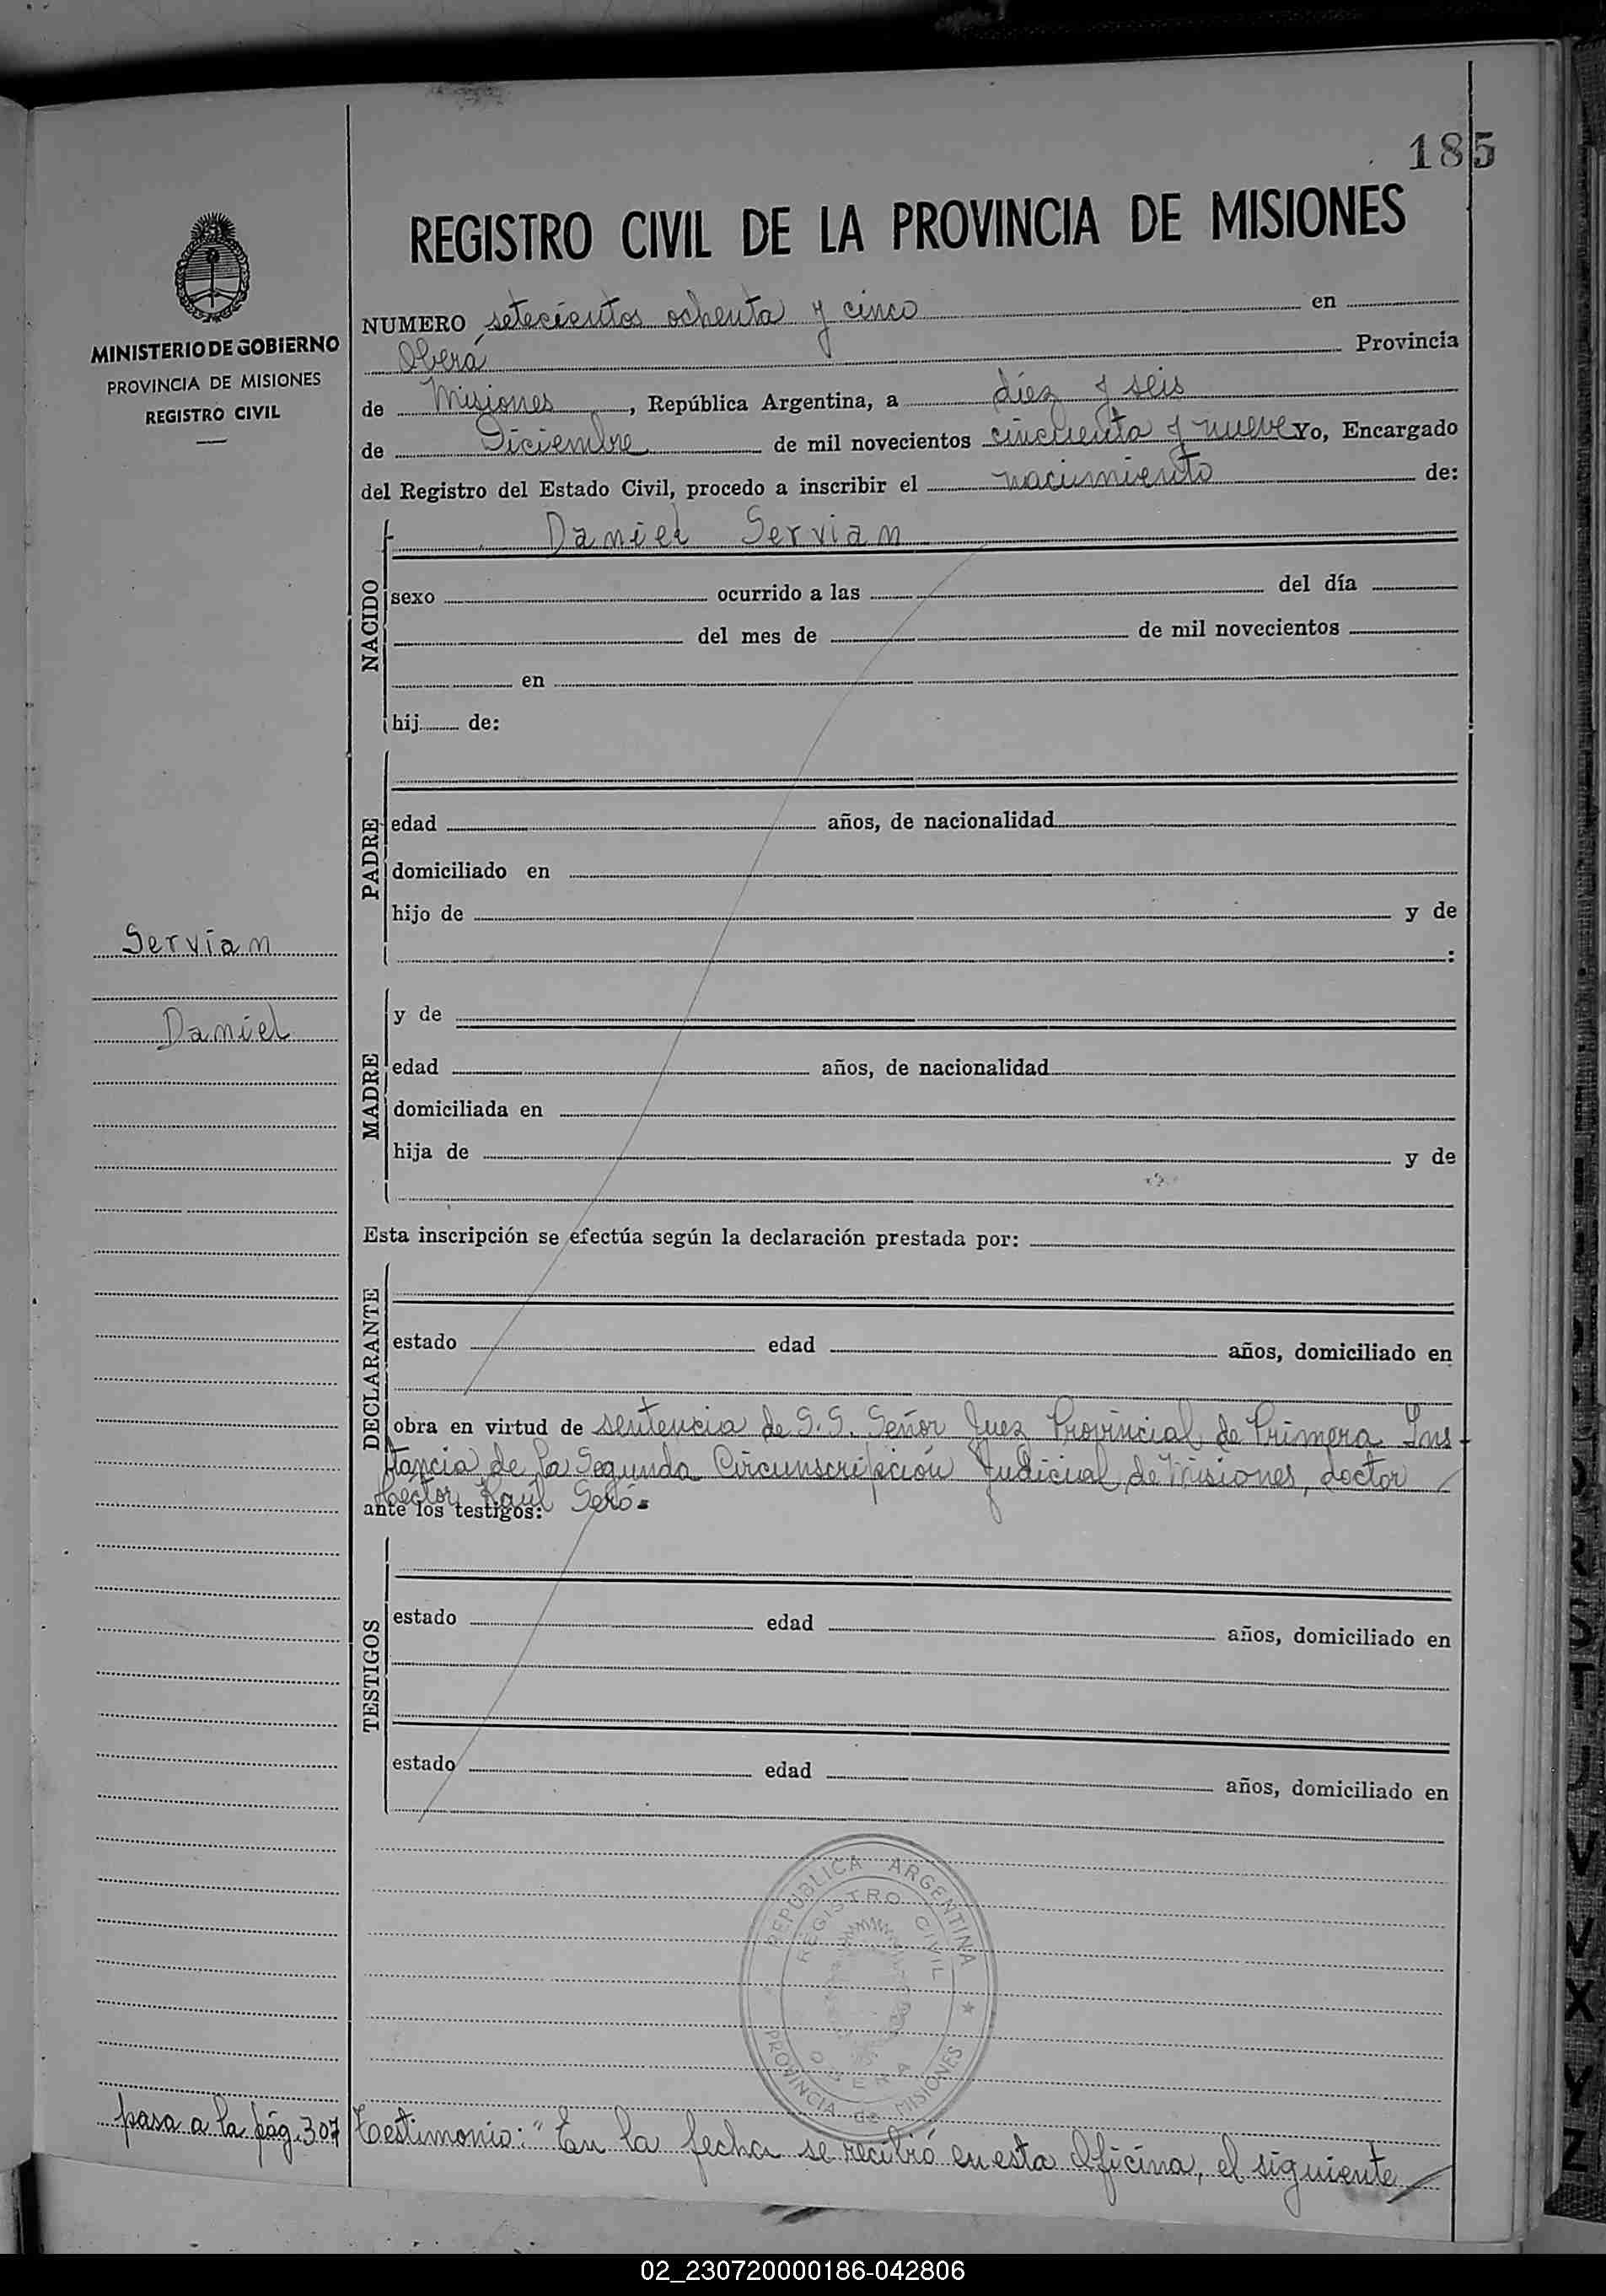 185
REGISTRO CIVIL DE LA PROVINCIA DE MISIONES
MINISTERIO DE GOBIERNO
PROVINCIA DE MISIONES
REGISTRO CIVIL
NUMERO setecientos ochenta y cinco en
Oberá Provincia
de Misiones, República Argentina, a diez y seis
de Diciembre de mil novecientos cincuenta y nueve Yo, Encargado
del Registro del Estado Civil, procedo a inscribir el nacimiento de:
NACIDO
Daniel Servian
sexo ocurrido a las del día
del mes de de mil novecientos
en
hij de:
PADRE
edad años, de nacionalidad
domiciliado en
hijo de y de
:
Servian
Daniel
MADRE
y de
edad años, de nacionalidad
domiciliada en
hija de y de
Esta inscripción se efectúa según la declaración prestada por:
DECLARANTE
estado edad años, domiciliado en
obra en virtud de sentencia de S.S. Señor Juez Provincial de Primera Ins
tancia de la Segunda Circunscripción Judicial de Misiones, doctor
Héctor Raúl Seró=
ante los testigos:
TESTIGOS
estado edad años, domiciliado en
estado edad años, domiciliado en
REPUBLICA ARGENTINA
REGISTRO CIVIL
OBERA
PROVINCIA de MISIONES
pasa a la pág. 307
Testimonio: "En la fecha se recibió en esta Oficina, el siguiente
02_230720000186-042806